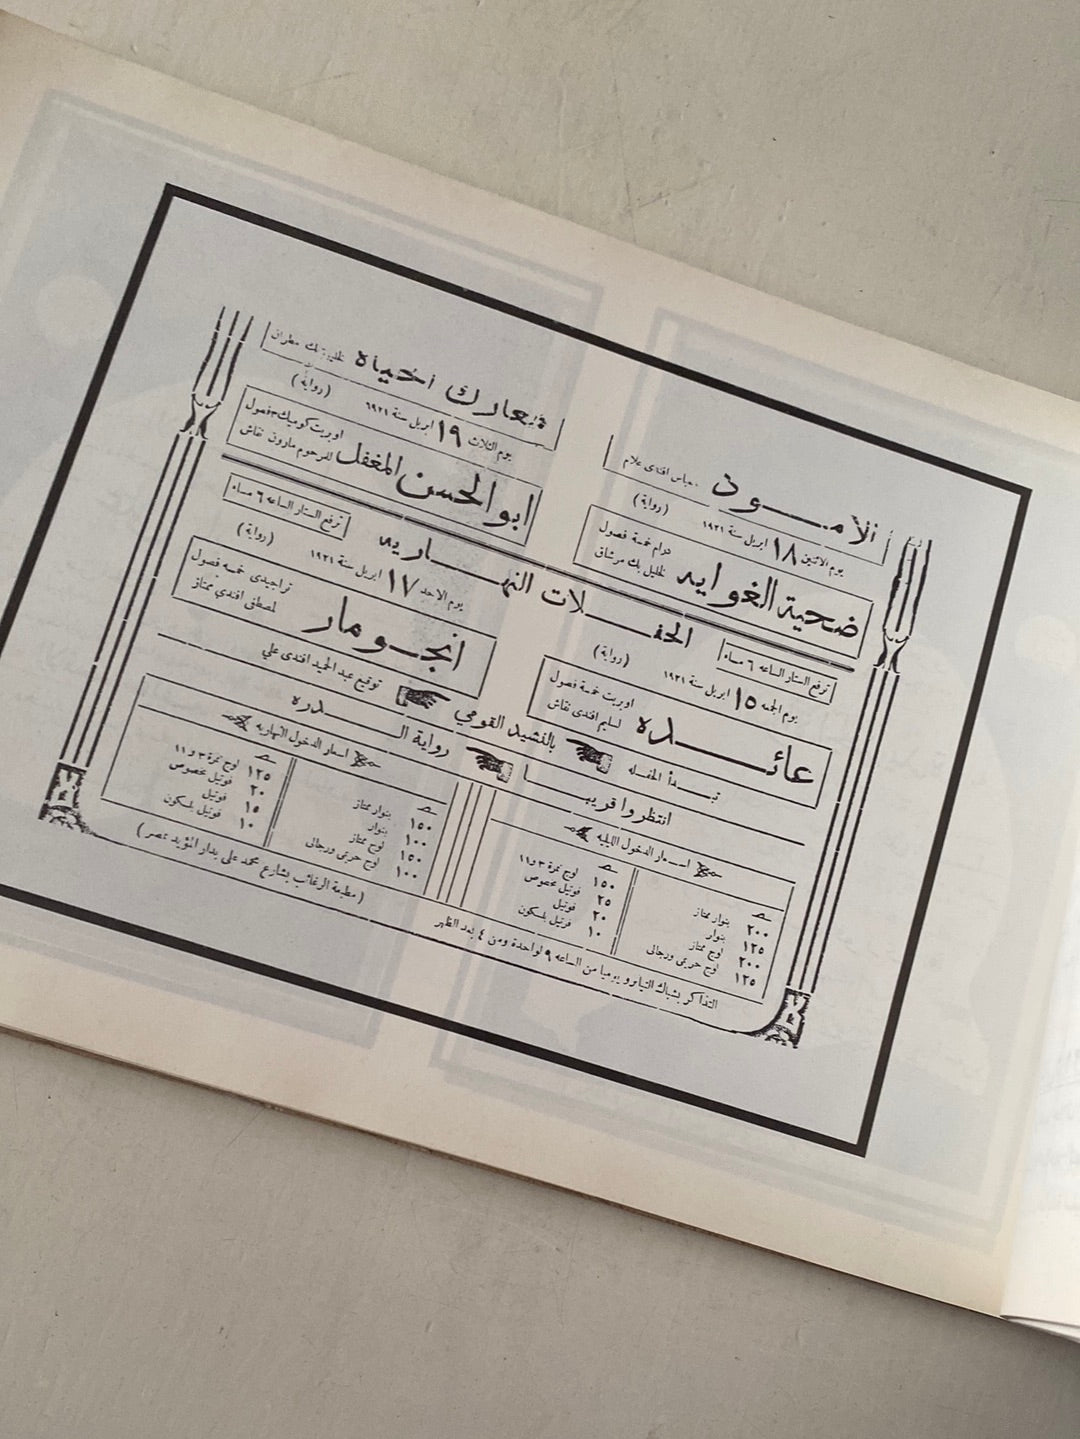 خليل بك مطران
معارك الحياة
الامــود
عباس افندى علام
يوم الاثنين ١٨ ابريل سنة ١٩٢١ (رواية)
يوم الثلاث ١٩ ابريل سنة ١٩٢١ (رواية)
ضحية الغوايه
درام خمسة فصول
لخليل بك مرشاق
ابو الحسن المغفل
اوبريت كوميك ٣ فصول
للمرحوم مارون نقاش
الحفــلات النهــاريه
ترفع الستار الساعه ٦ مساء
ترفع الستار الساعه ٦ مساء
يوم الجمعه ١٥ ابريل سنة ١٩٢١ (رواية)
يوم الاحد ١٧ ابريل سنة ١٩٢١ (رواية)
عائــده
اوبريت خمسة فصول
لسليم افندى نقاش
انجــومار
تراجيدى خمسه فصول
لمصطفى افندي ممتاز
تبــدأ الحفــله بالنشيد القومي توقيع عبد الحميد افندى علي
انتظروا قريبــا رواية الــدره
اسعار الدخول الليليه
٢٠٠ بنوار ممتاز
١٢٥ بنوار
٢٠٠ لوج ممتاز
١٢٥ لوج حريمى ورجالى
١٥٠ لوج نمرة ٣ و ١١
٢٥ فوتيل مخصوص
٢٠ فوتيل
١٠ فوتيل بلسكون
اسعار الدخول النهاريه
١٥٠ بنوار ممتاز
١٠٠ بنوار
١٥٠ لوج ممتاز
١٠٠ لوج حريمى ورجالى
١٢٥ لوج نمرة ٣ و ١١
٢٠ فوتيل مخصوص
١٥ فوتيل
١٠ فوتيل بلسكون
التذاكر بشباك التياترو يوميا من الساعه ٩ لواحدة ومن ٤ بعد الظهر
( مطبعة الرغائب بشارع محمد على بدار المؤيد بمصر )